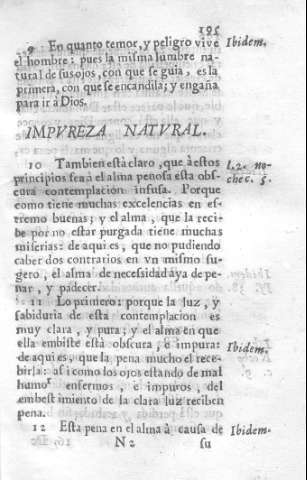 195
9 En quanto temor, y peligro vive Ibidem.
el hombre: pues la misma lumbre na-
tural de sus ojos, con que se guia, es la
primera, con que se encandila; y engaña
para ir à Dios.
IMPVREZA NATVRAL.
10 Tambien està claro, que à estos l.2. no-
principios serà el alma penosa esta obs- che c. 5.
cura contemplacion infusa. Porque
como tiene muchas excelencias en es-
tremo buenas; y el alma, que la reci-
be por no estar purgada tiene muchas
miserias: de aqui es, que no pudiendo
caber dos contrarios en vn mismo su-
gero, el alma de necessidad aya de pe-
nar, y padecer.
11 Lo primero: porque la luz, y
sabiduria de esta contemplacion es
muy clara, y pura; y el alma en que
ella embiste està obscura, è impura: Ibidem.
de aqui es, que la pena mucho el rece-
birla: asi como los ojos estando de mal
humor enfermos, è impuros, del
embestimiento de la clara luz reciben
pena.
12 Esta pena en el alma à causa de Ibidem.
N2 su